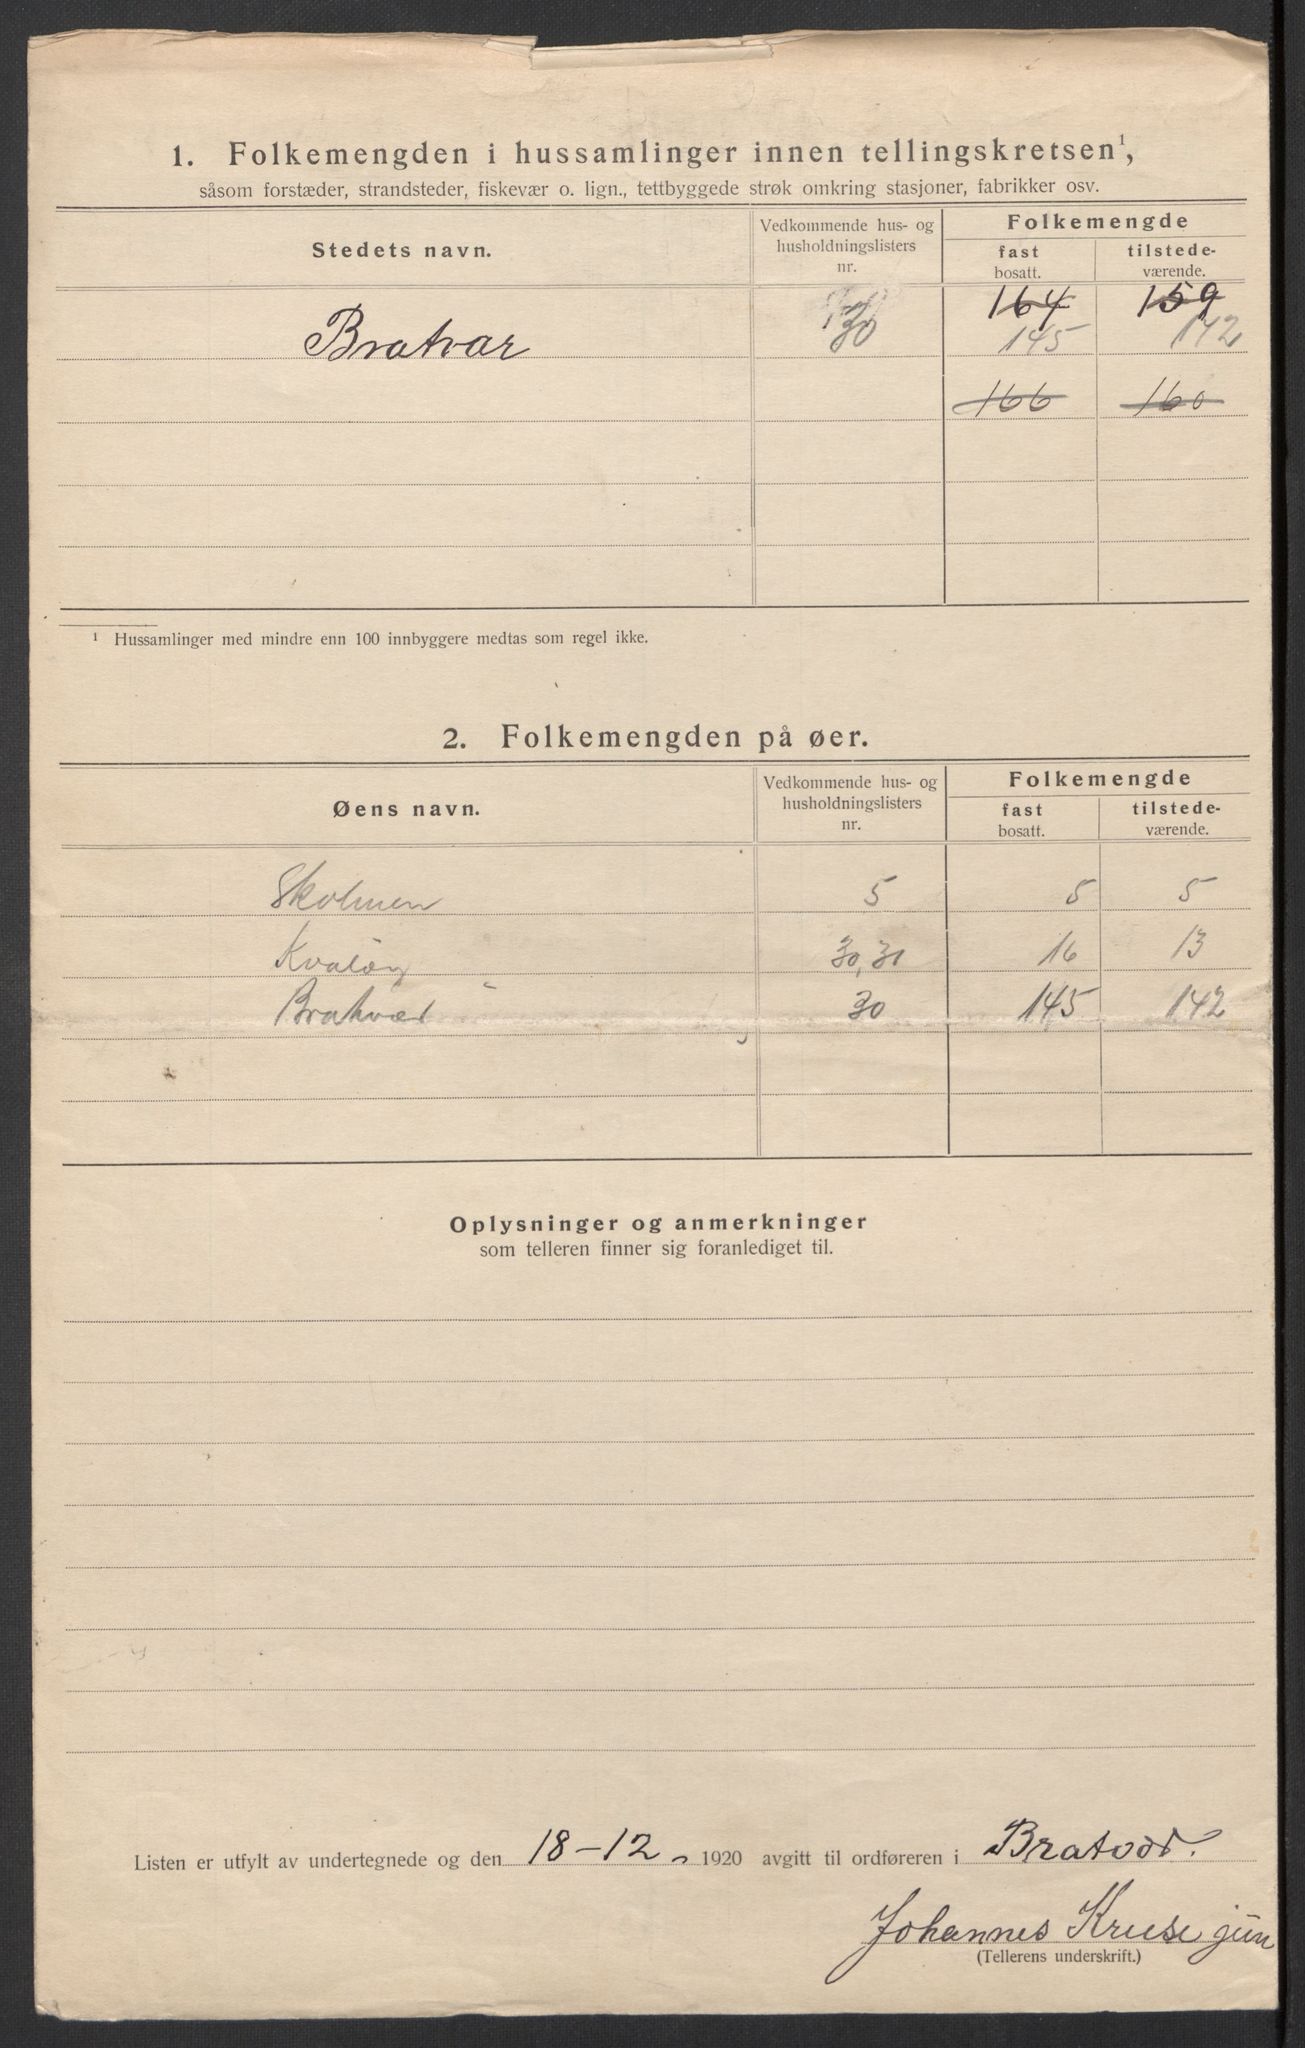 1. Folkemengden i hussamlinger innen tellingskretsen¹,
såsom forstæder, strandsteder, fiskevær o. lign., tettbyggede strøk omkring stasjoner, fabrikker osv.
Stedets navn.
Vedkommende hus- og husholdningslisters nr.
Folkemengde
fast bosatt.
tilstede-værende.
164 159
Bratvær 30 145 142
166 160
¹ Hussamlinger med mindre enn 100 innbyggere medtas som regel ikke.
2. Folkemengden på øer.
Øens navn.
Vedkommende hus- og husholdningslisters nr.
Folkemengde
fast bosatt.
tilstede-værende.
Skolmen 5 5 5
Kvaløy 30, 31 16 13
Bratvær 30 145 142
Oplysninger og anmerkninger
som telleren finner sig foranlediget til.
Listen er utfylt av undertegnede og den 18-12 1920 avgitt til ordføreren i Bratvær.
Johannes Kruse jun
(Tellerens underskrift.)